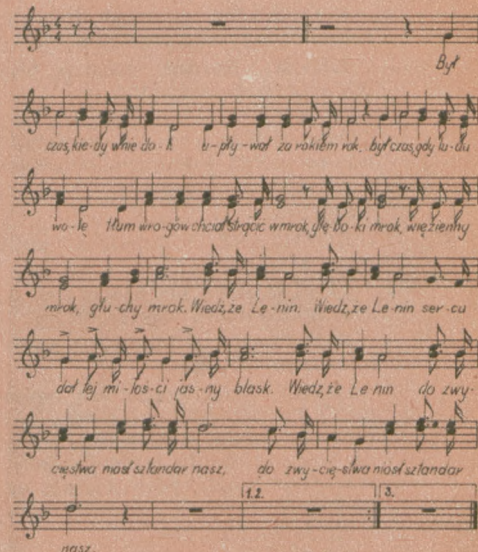 Był
czas, kie-dy wnie do-li u-pły-wał za rokiem rok, był czas, gdy lu-du
wo-lę tłum wro-gów chciał strącić w mrok, głę-bo-ki mrok, więzienny
mrok, głu-chy mrok. Wiedz, że Le-nin. Wiedz, że Le-nin ser-cu
dał tej mi-łoś-ci jas-ny blask. Wiedz, że Le nin do zwy-
cięstwa niósł sztandar nasz, do zwy-cię-stwa niósł sztandar
1.2. 3.
nasz.